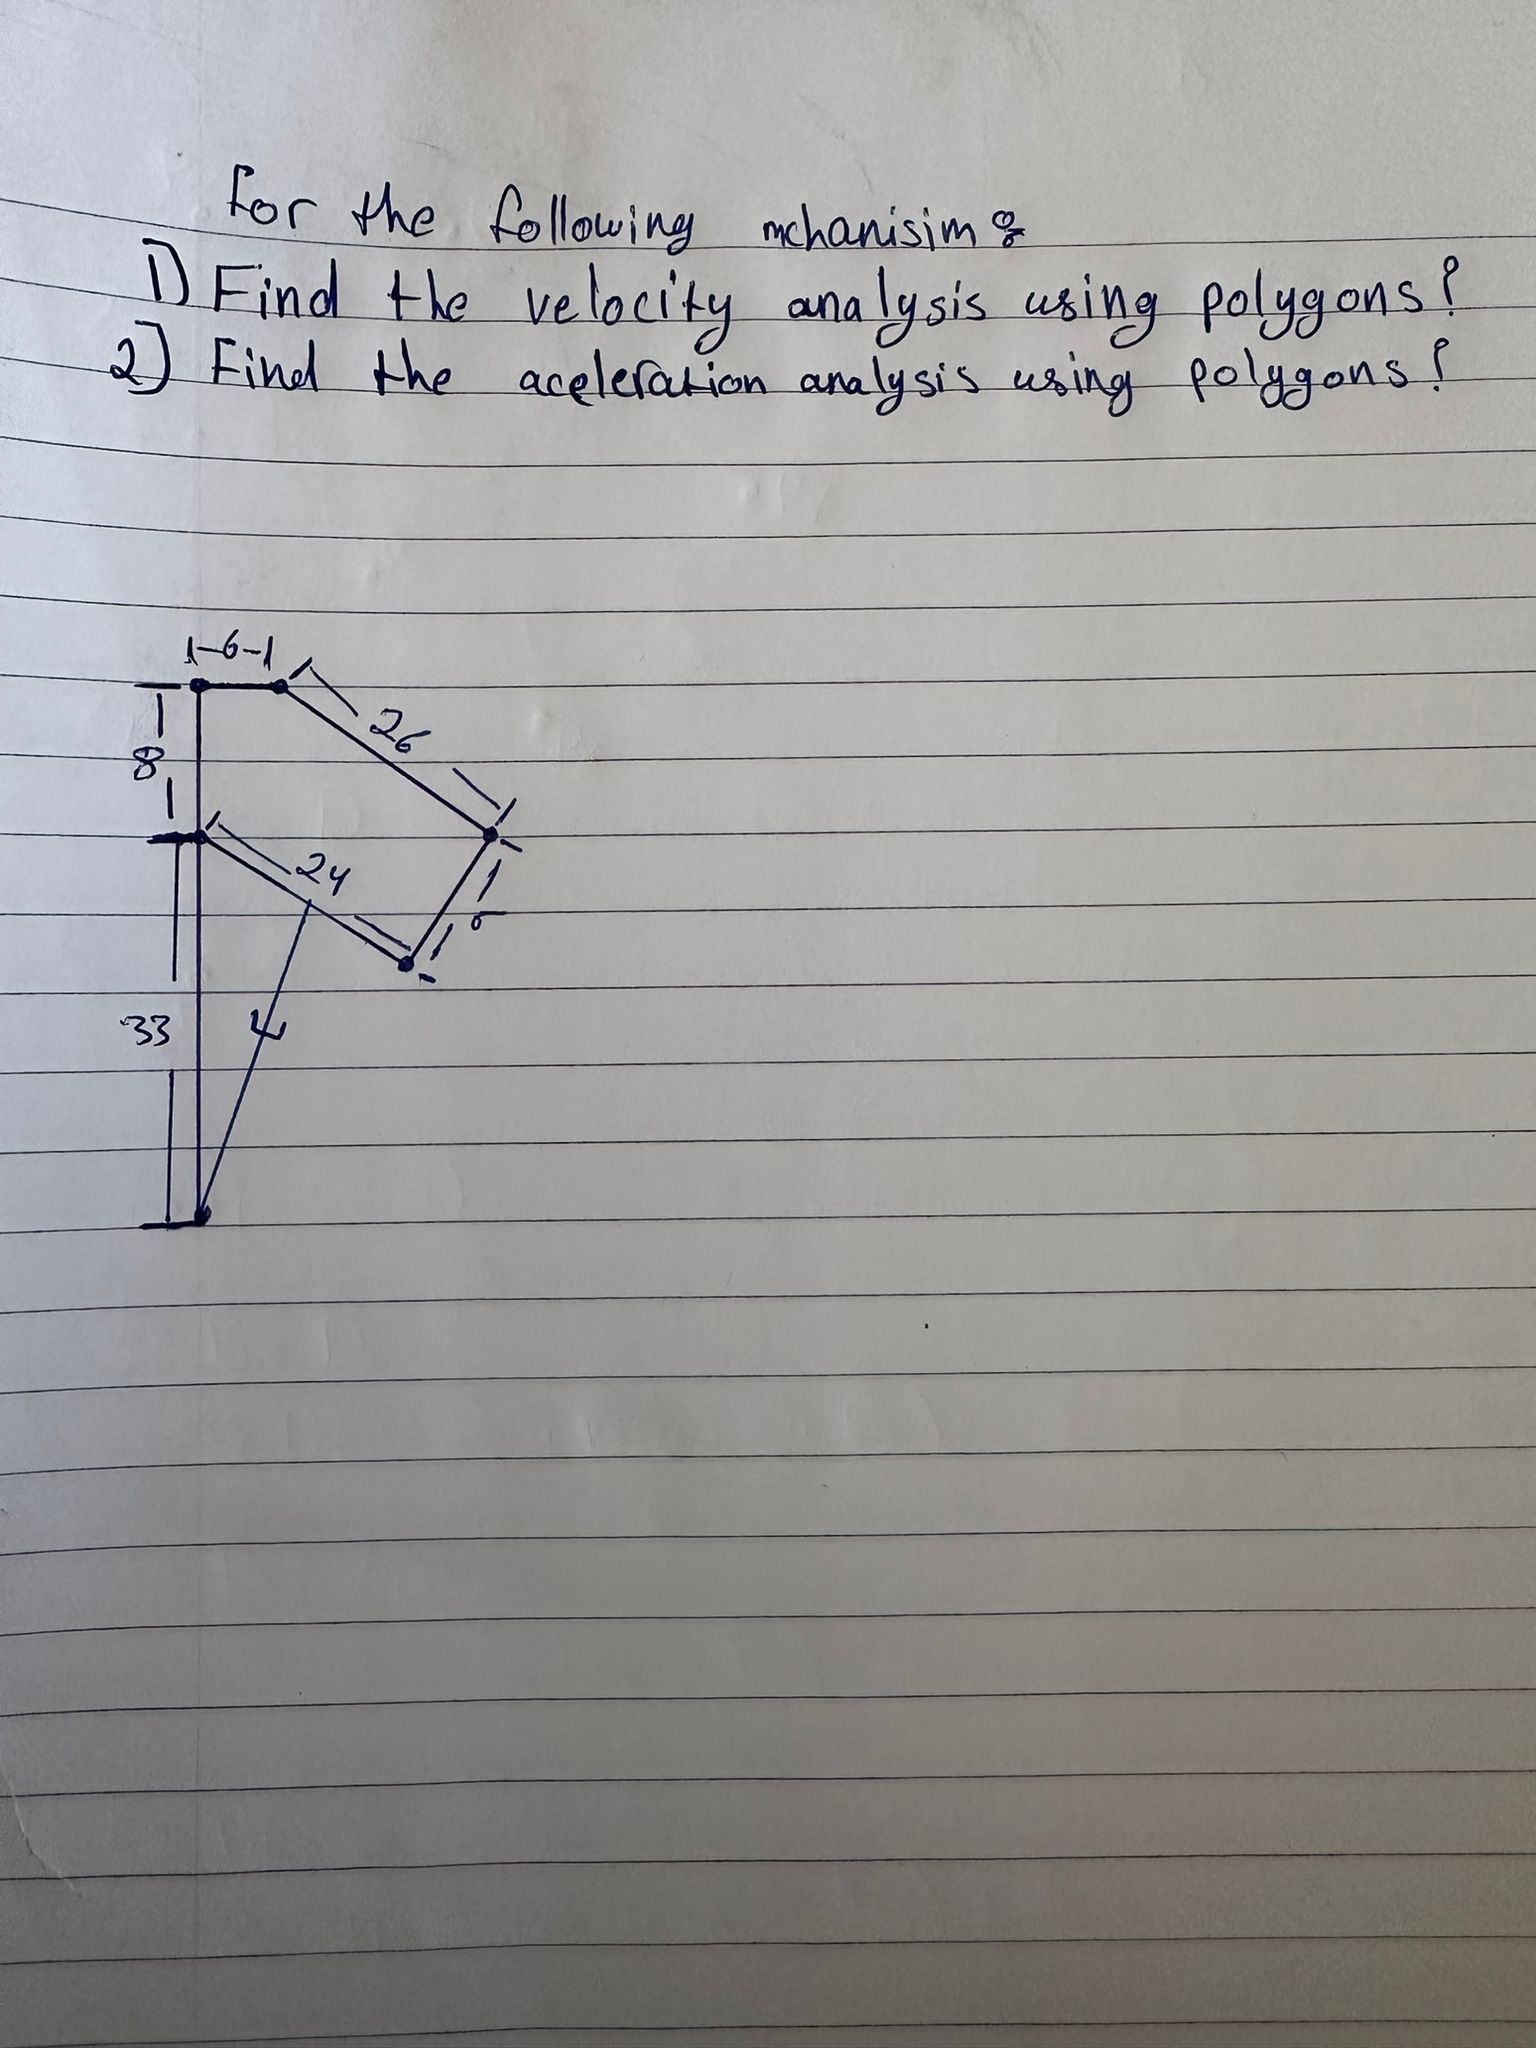 for the following mchanisim :
1) Find the velocity analysis using polygons?
2) Find the aceleration analysis using polygons?
6
26
8
24
33